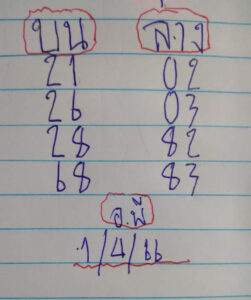 บน ล่าง
21 02
26 03
28 82
68 83
อ.พี
1/4/66